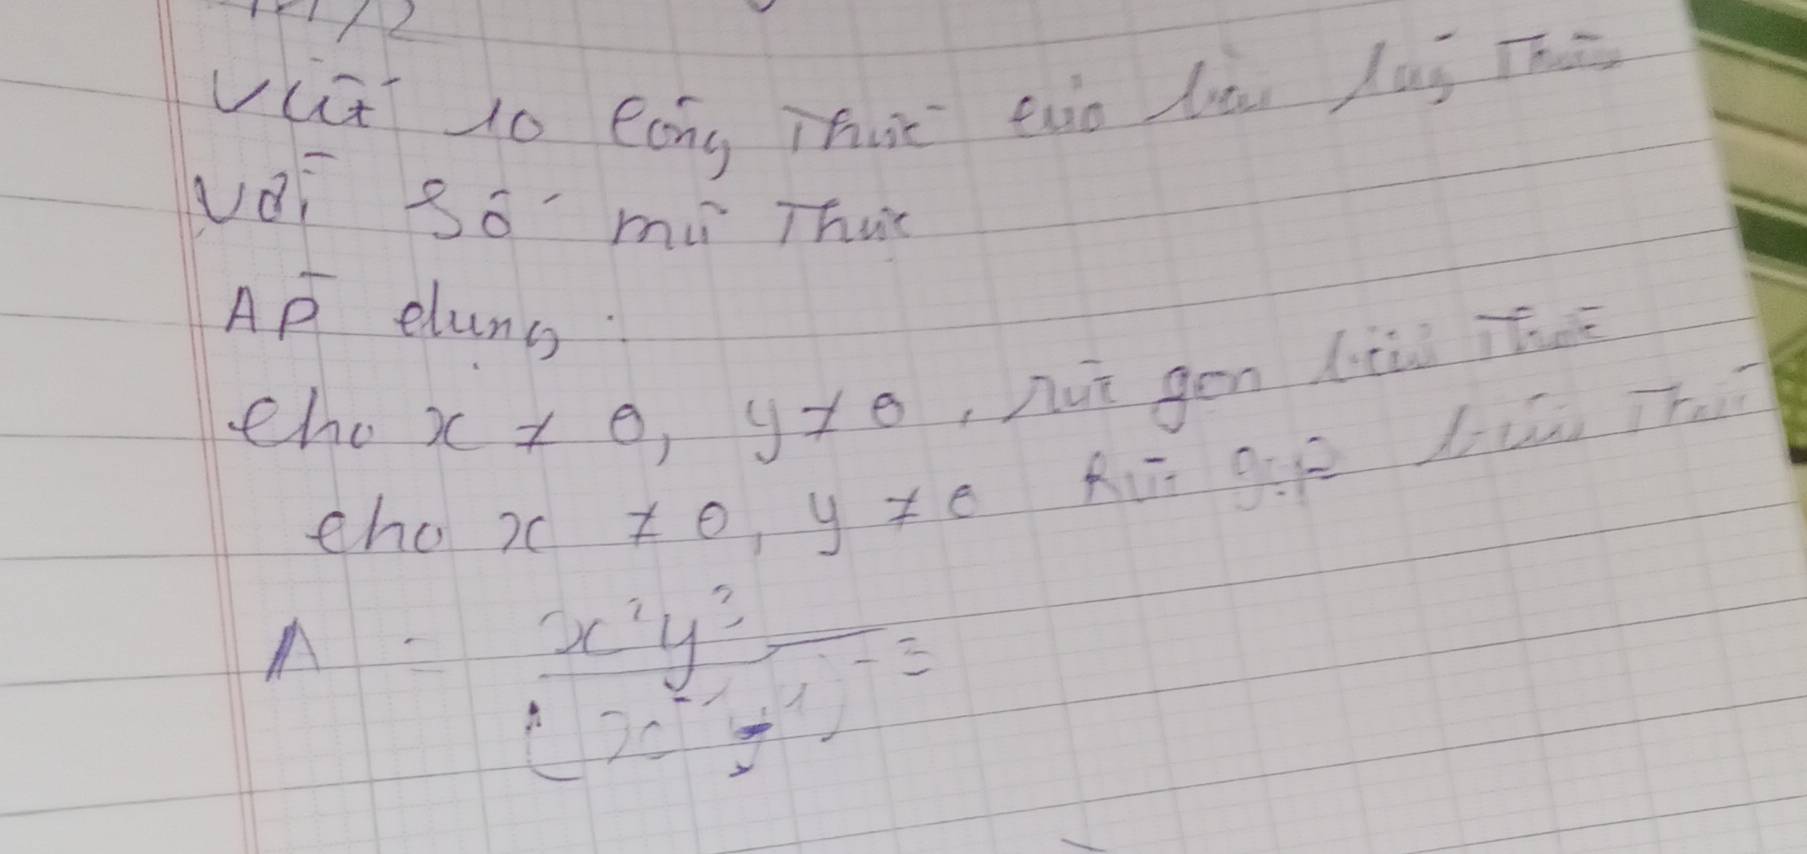 Viết 10 công thức của bài luỹ thừa
với số mũ thực
Áp dụng:
cho x ≠ 0, y ≠ 0, rút gọn biểu thức
cho x ≠ 0, y ≠ 0 Rút biểu thức
A = x²y³
(x⁻¹y¹)⁻³